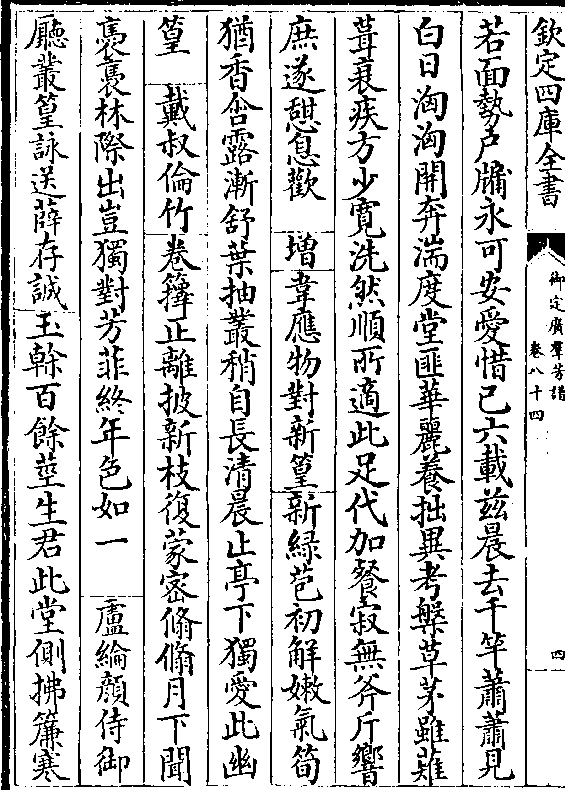 欽定四庫全書
御定廣羣芳譜
卷八十四
四
若面勢戸牖永可安愛惜已六載兹晨去千竿蕭蕭見
白日洶洶開奔湍度堂匪華麗養拙異考槃草茅雖薙
葺衰疾方少寛洗然順所適此足代加餐寂無斧斤響
庶遂憇息歡　増韋應物對新篁新緑苞初解嫩氣筍
猶香含露漸舒葉抽叢稍自長清晨止亭下獨愛此幽
篁　戴叔倫竹卷籜正離披新枝復蒙密翛翛月下聞
裊裊林際出豈獨對芳菲終年色如一　盧綸顔侍御
廳叢篁詠送薛存誠玉幹百餘莖生君此堂側拂簾寒